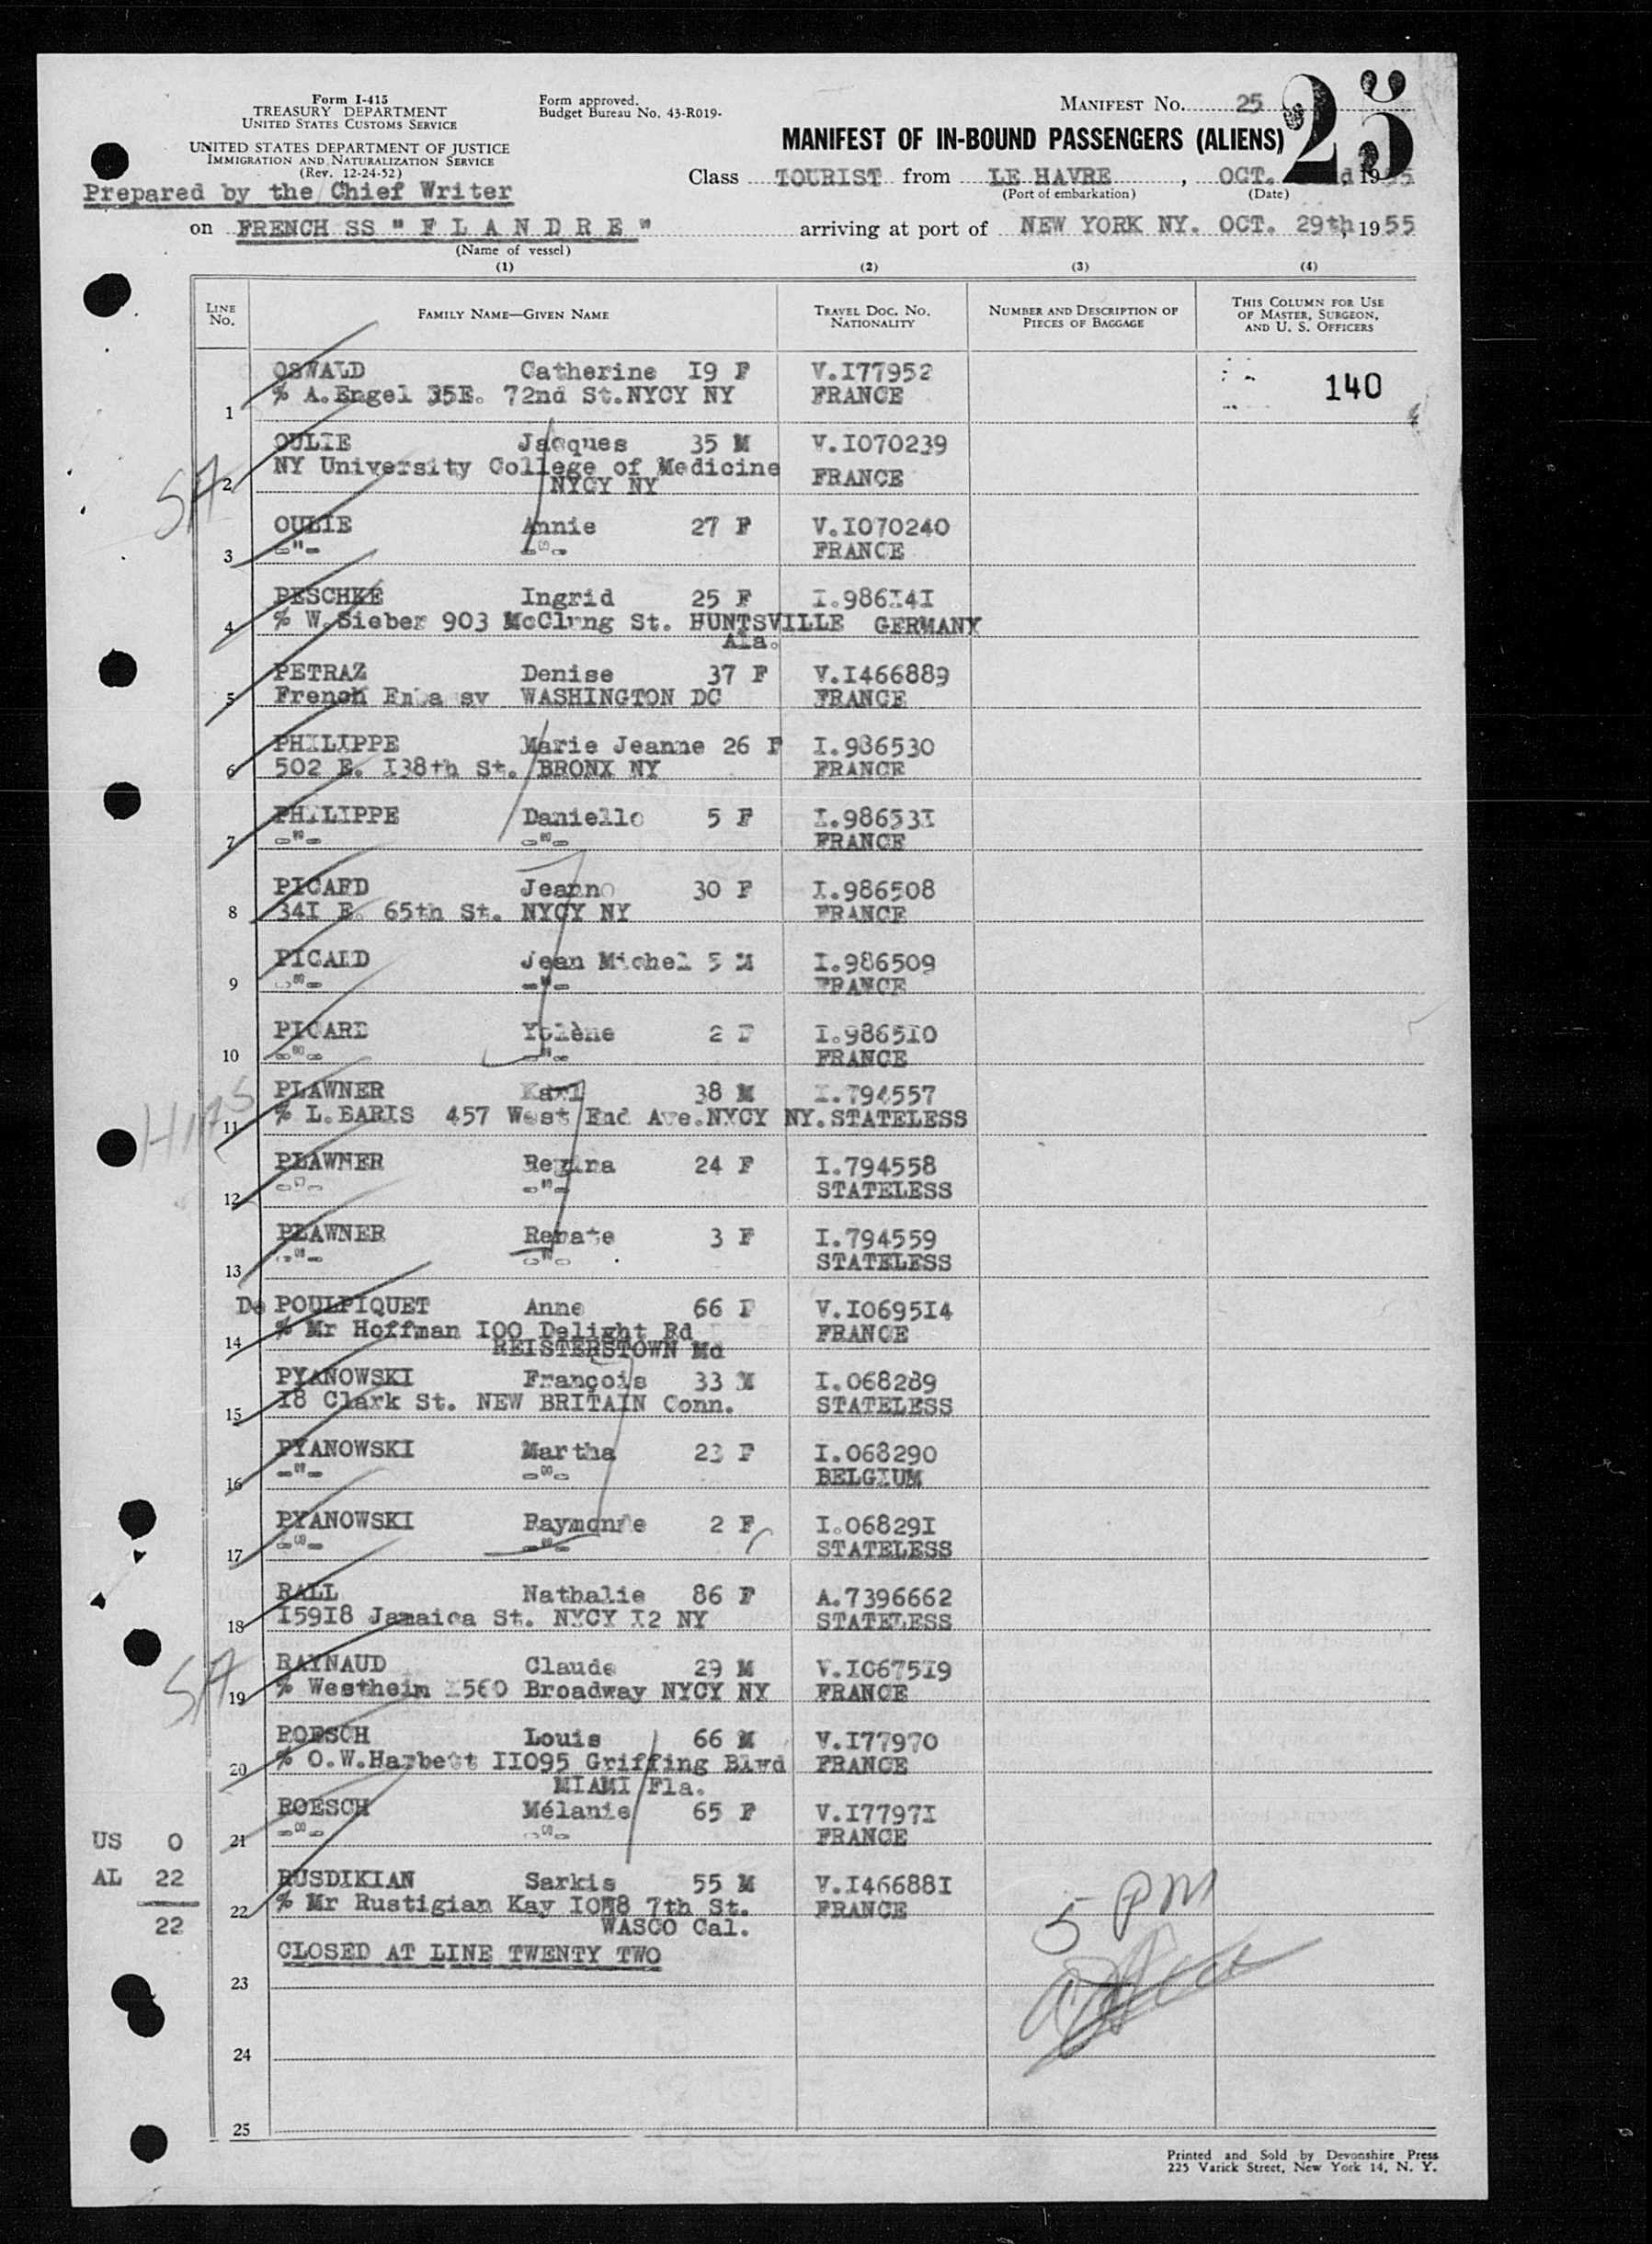 Form I-415
TREASURY DEPARTMENT
UNITED STATES CUSTOMS SERVICE
UNITED STATES DEPARTMENT OF JUSTICE
IMMIGRATION AND NATURALIZATION SERVICE
(Rev. 12-24-52)
Prepared by the Chief Writer
Form approved.
Budget Bureau No. 43-R019-
MANIFEST No. 25
25
MANIFEST OF IN-BOUND PASSENGERS (ALIENS)
Class TOURIST from LE HAVRE , OCT. 1955
(Port of embarkation) (Date)
on FRENCH SS " F L A N D R E " arriving at port of NEW YORK NY. OCT. 29th, 1955
(Name of vessel)
(1) (2) (3) (4)
LINE No. FAMILY NAME—GIVEN NAME TRAVEL DOC. NO. NATIONALITY NUMBER AND DESCRIPTION OF PIECES OF BAGGAGE THIS COLUMN FOR USE OF MASTER, SURGEON, AND U. S. OFFICERS
OSWALD Catherine I9 F V.I77952
1 % A.Engel 35E. 72nd St.NYCY NY FRANCE 140
OULIE Jacques 35 M V.I070239
SA 2 NY University College of Medicine FRANCE
NYCY NY
OULIE Annie 27 F V.I070240
3 -"- -"- FRANCE
PESCHKE Ingrid 25 F I.986I4I
4 % W.Sieber 903 McClung St. HUNTSVILLE GERMANY
Ala.
PETRAZ Denise 37 F V.I466889
5 French Embassy WASHINGTON DC FRANCE
PHILIPPE Marie Jeanne 26 F I.986530
6 502 E. I38th St. BRONX NY FRANCE
PHILIPPE Danielle 5 F I.98653I
7 -"- -"- FRANCE
PICARD Jeanne 30 F I.986508
8 34I E. 65th St. NYCY NY FRANCE
PICARD Jean Michel 5 M I.986509
9 -"- -"- FRANCE
PICARD Yolène 2 F I.9865I0
10 -"- -"- FRANCE
PLAWNER Karl 38 M I.794557
HIAS 11 % L.BARIS 457 West End Ave.NYCY NY. STATELESS
PLAWNER Regina 24 F I.794558
12 -"- -"- STATELESS
PLAWNER Renate 3 F I.794559
13 -"- -"- STATELESS
De POULPIQUET Anne 66 F V.I0695I4
14 % Mr Hoffman I00 Delight Rd FRANCE
REISTERSTOWN Md
PYANOWSKI François 33 M I.068289
15 I8 Clark St. NEW BRITAIN Conn. STATELESS
PYANOWSKI Martha 23 F I.068290
16 -"- -"- BELGIUM
PYANOWSKI Raymonde 2 F I.06829I
17 -"- -"- STATELESS
RALL Nathalie 86 F A.7396662
18 I59I8 Jamaica St. NYCY I2 NY STATELESS
RAYNAUD Claude 29 M V.I0675I9
SA 19 % Westheim I560 Broadway NYCY NY FRANCE
ROESCH Louis 66 M V.I77970
20 % O.W.Harbett II095 Griffing Blvd FRANCE
MIAMI Fla.
ROESCH Mélanie 65 F V.I7797I
US 0 21 -"- -"- FRANCE
AL 22 RUSDIKIAN Sarkis 55 M V.I46688I
22 % Mr Rustigian Kay 7th St. FRANCE
22 WASCO Cal.
5 PM
CLOSED AT LINE TWENTY TWO
23
24
25
Printed and Sold by Devonshire Press
225 Varick Street, New York 14, N. Y.